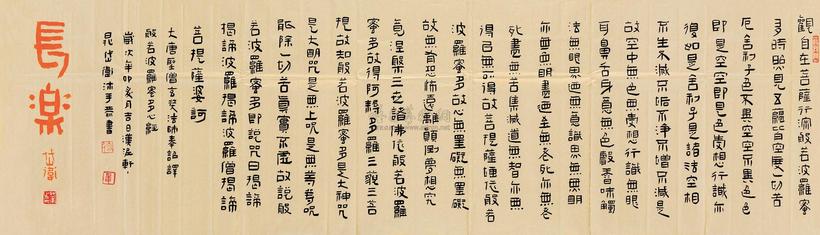 觀自在菩薩行深般若波羅蜜
多時照見五蘊皆空度一切苦
厄舍利子色不異空空不異色色
即是空空即是色受想行識亦
復如是舍利子是諸法空相
不生不滅不垢不淨不增不減是
故空中無色無受想行識無眼
耳鼻舌身意無色聲香味觸
法無眼界乃至無意識界無無明
亦無無明盡乃至無老死亦無老
死盡無苦集滅道無智亦無
得以無所得故菩提薩埵依般若
波羅蜜多故心無罣礙無罣礙
故無有恐怖遠離顛倒夢想究
竟涅槃三世諸佛依般若波羅
蜜多故得阿耨多羅三藐三菩
提故知般若波羅蜜多是大神咒
是大明咒是無上咒是無等等咒
能除一切苦真實不虛故說般
若波羅蜜多即說咒曰揭諦
揭諦波羅揭諦波羅僧揭諦
菩提薩婆訶
大唐聖僧玄奘法師奉詔譯
般若波羅蜜多心經
歲次辛卯月吉日漢軒
岱衛沐手恭書
長樂
岱衛